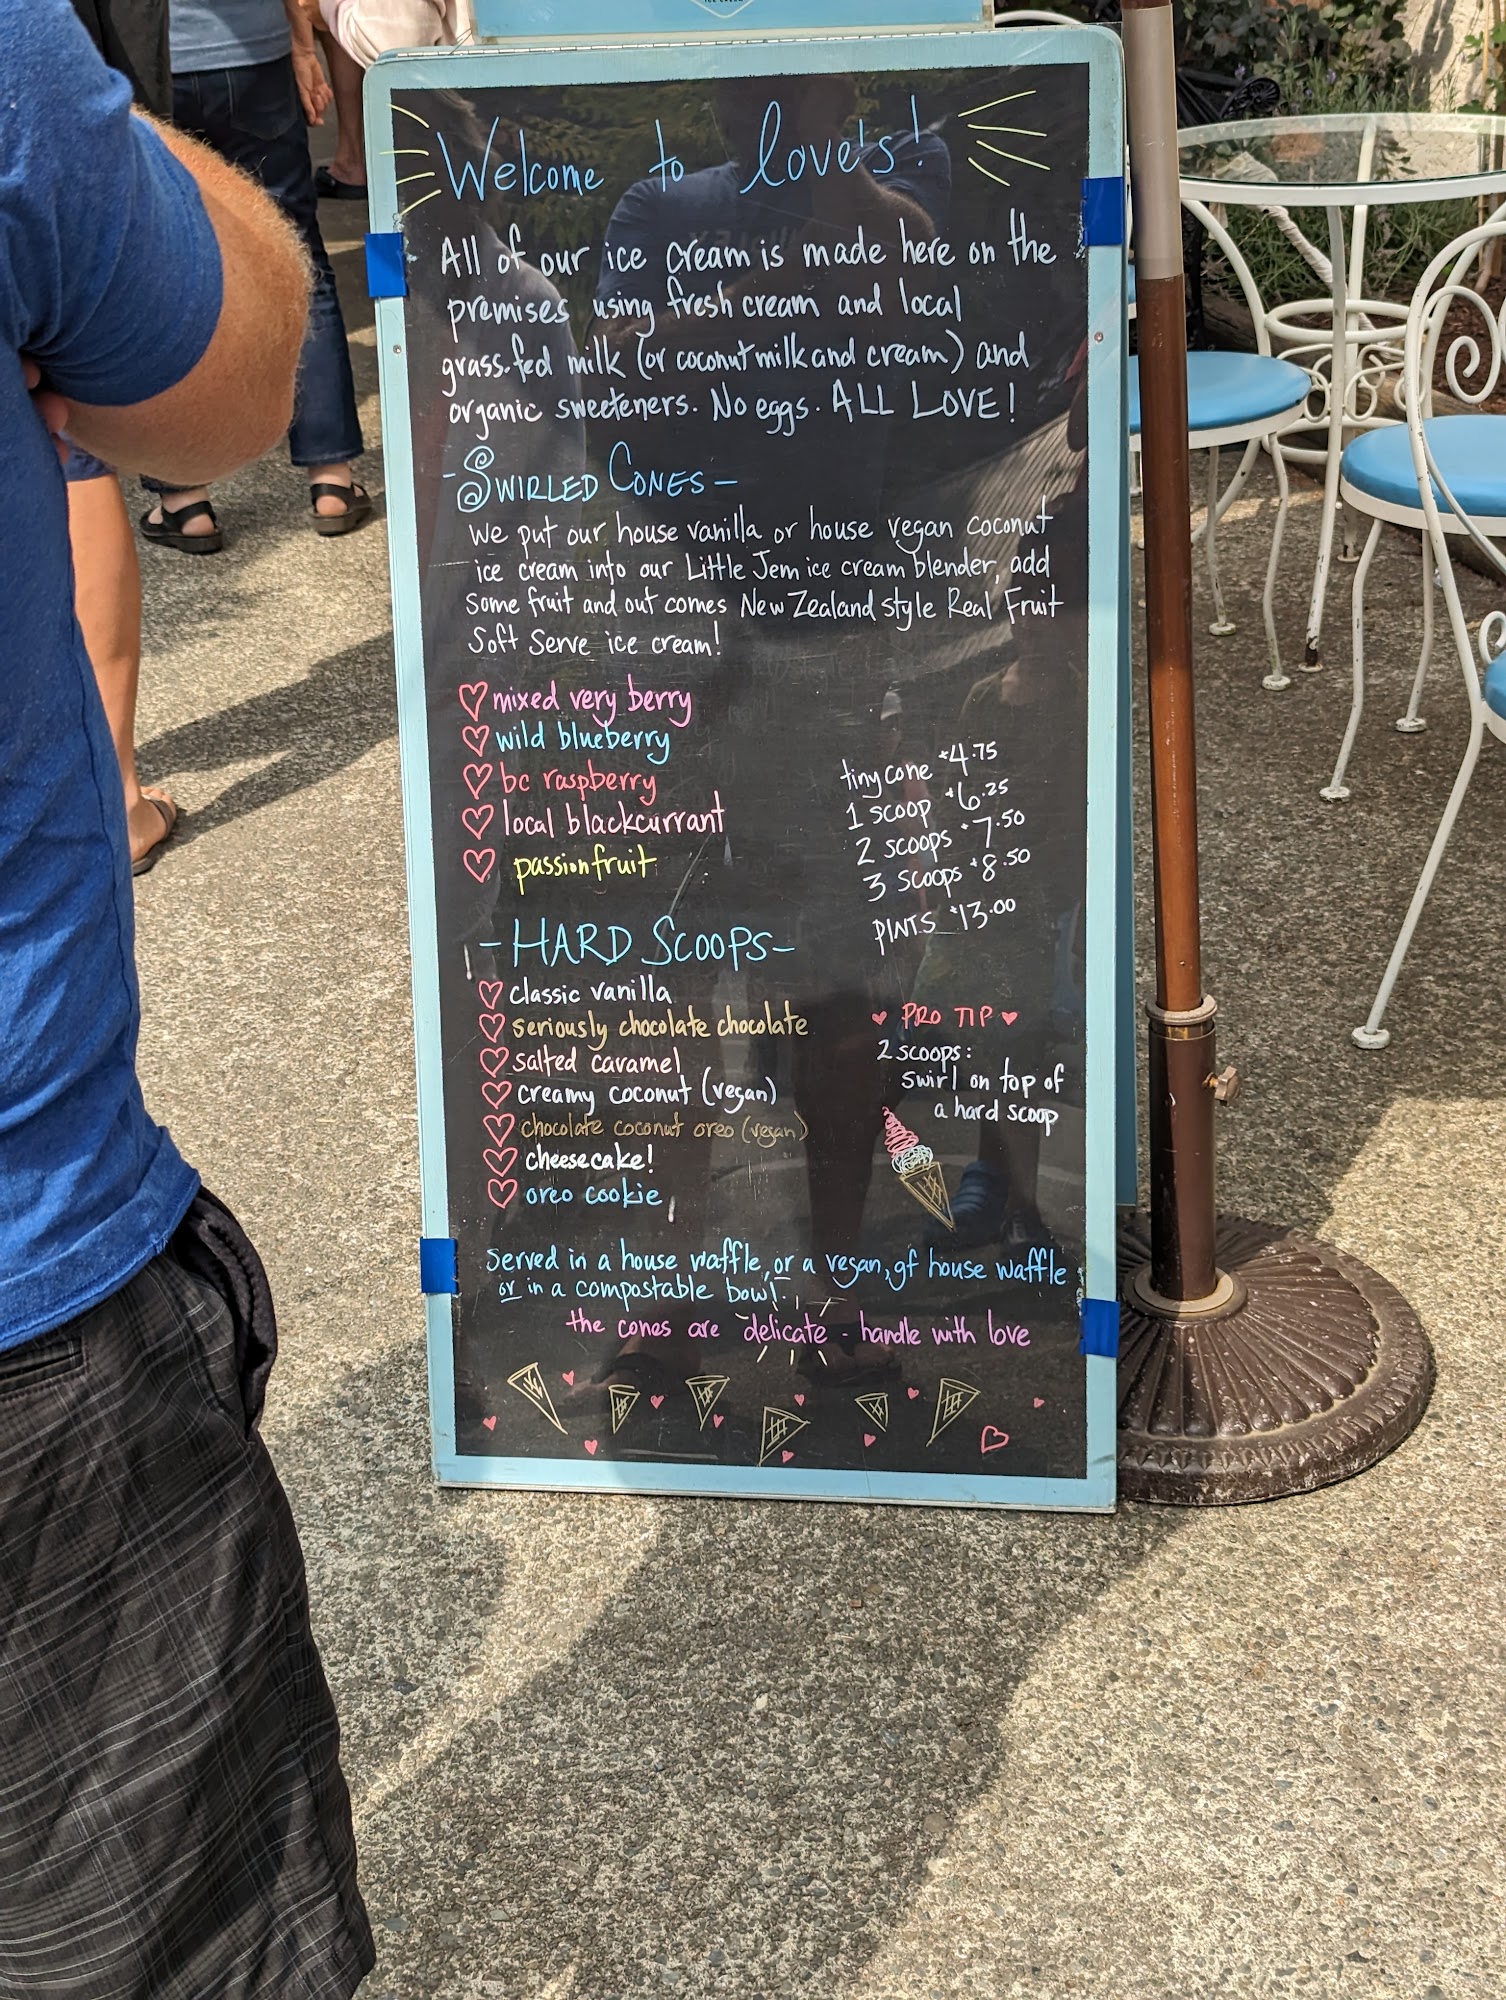 Welcome to love's!
All of our ice cream is made here on the
premises using fresh cream and local
grass-fed milk (or coconut milk and cream) and
organic sweeteners. No eggs. ALL LOVE!
- SWIRLED CONES -
We put our house vanilla or house vegan coconut
ice cream into our Little Jem ice cream blender, add
some fruit and out comes New Zealand style Real Fruit
Soft Serve ice cream!
mixed very berry
wild blueberry
bc raspberry
local blackcurrant
passionfruit
tiny cone $4.75
1 scoop $6.25
2 scoops $7.50
3 scoops $8.50
PINTS $13.00
- HARD SCOOPS -
classic vanilla
seriously chocolate chocolate
salted caramel
creamy coconut (vegan)
chocolate coconut oreo (vegan)
cheesecake!
oreo cookie
PRO TIP
2 scoops:
swirl on top of
a hard scoop
Served in a house waffle, or a vegan, gf house waffle
or in a compostable bowl.
the cones are delicate - handle with love